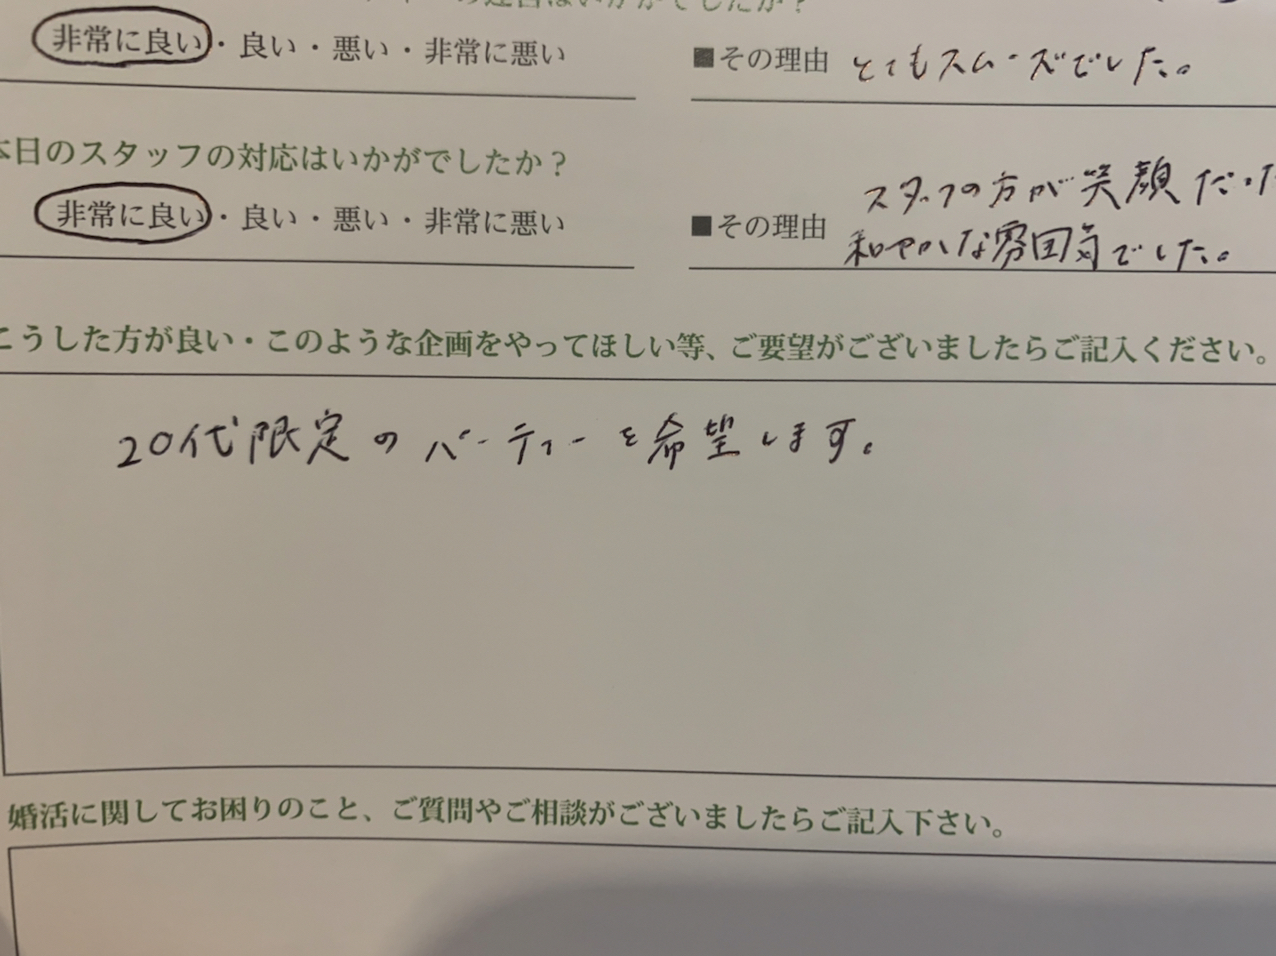 の運営はいかがでしたか？
非常に良い・良い・悪い・非常に悪い ■その理由 とてもスムーズでした。
本日のスタッフの対応はいかがでしたか？
スタッフの方が笑顔だった
非常に良い・良い・悪い・非常に悪い ■その理由
和やかな雰囲気でした。
こうした方が良い・このような企画をやってほしい等、ご要望がございましたらご記入ください。
20代限定のパーティーを希望します。
婚活に関してお困りのこと、ご質問やご相談がございましたらご記入下さい。